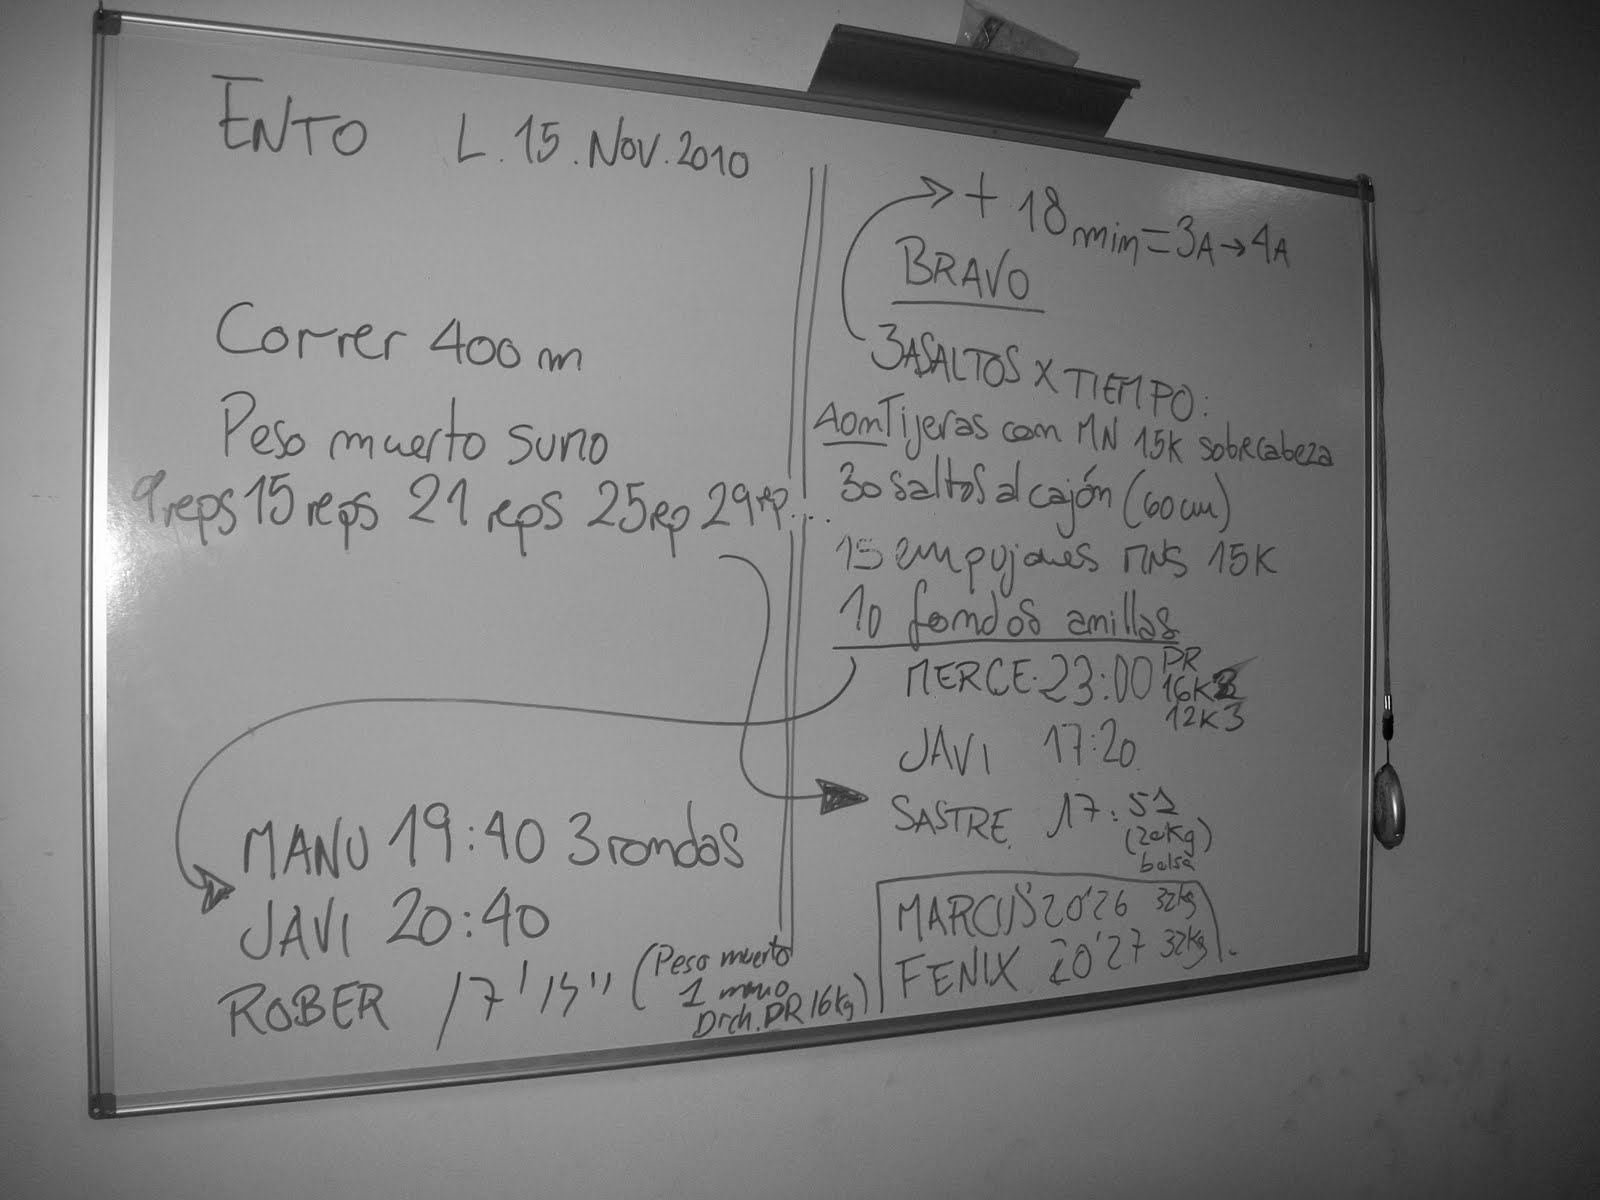 ENTO L.15.NOV.2010
Correr 400 m
Peso muerto sumo
9reps 15 reps 21 reps 25rep 29rep...
MANU 19:40 3 rondas
JAVI 20:40
ROBER 17'15'' (Peso muerto
1 mano
Drch. PR 16kg)
+ 18 min = 3A → 4A
BRAVO
3 ASALTOS X TIEMPO:
40m Tijeras con MN 15K sobrecabeza
30 saltos al cajón (60cm)
15 empujones MNS 15K
10 fondos anillas
MERCE 23:00 PR
16K
12K3
JAVI 17:20
SASTRE 17:51
(20kg)
bolsa
MARCUS 20'26 32kg
FENIX 20'27 32kg.